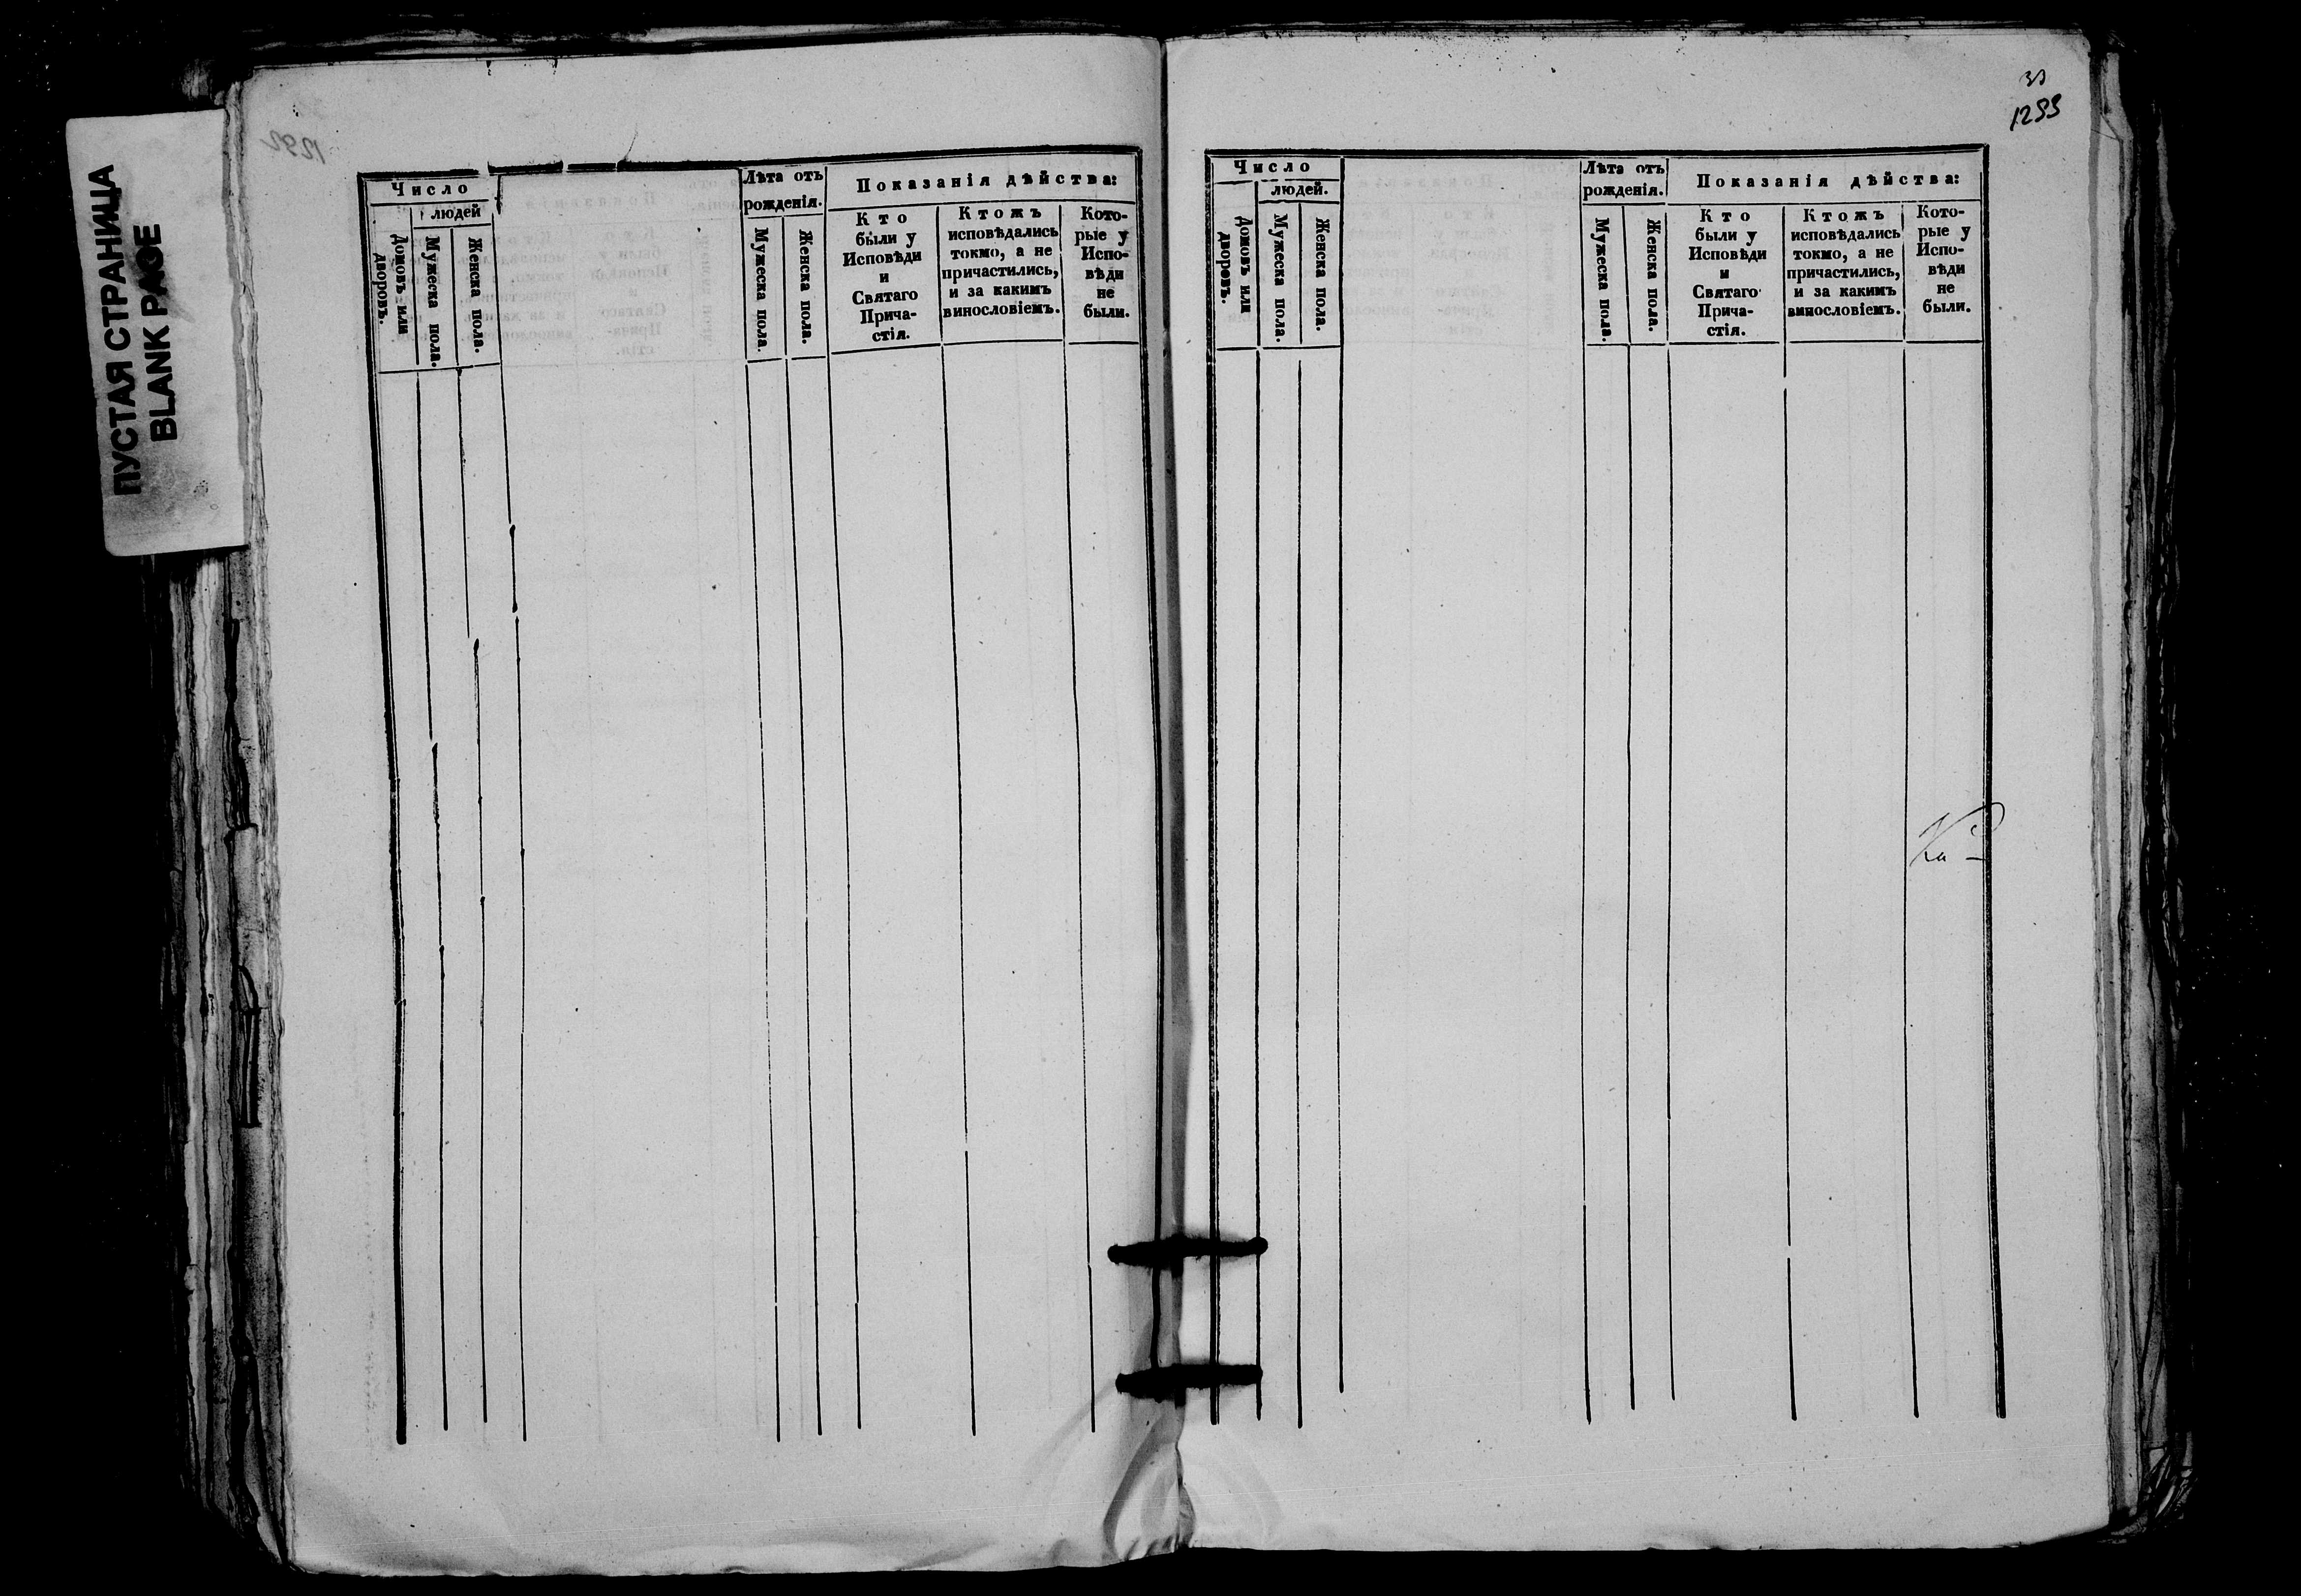 ПУСТАЯ СТРАНИЦА
BLANK PAGE
Число
людей
Домовъ или дворовъ.
Мужеска пола.
Женска пола.
Лѣта отъ
рожденія.
Мужеска пола.
Женска пола.
Показанія дѣйства:
Кто
были у
Исповѣди
и
Святаго
Прича-
стія.
Ктожъ
исповѣдались
токмо, а не
причастились,
и за какимъ
винословіемъ.
Кото-
рые у
Испо-
вѣди
не
были.
1293
Число
людей.
Домовъ или дворовъ.
Мужеска пола.
Женска пола.
Лѣта отъ
рожденія.
Мужеска пола.
Женска пола.
Показанія дѣйства:
Кто
были у
Исповѣди
и
Святаго
Прича-
стія.
Ктожъ
исповѣдались
токмо, а не
причастились,
и за какимъ
винословіемъ.
Кото-
рые у
Испо-
вѣди
не
были.